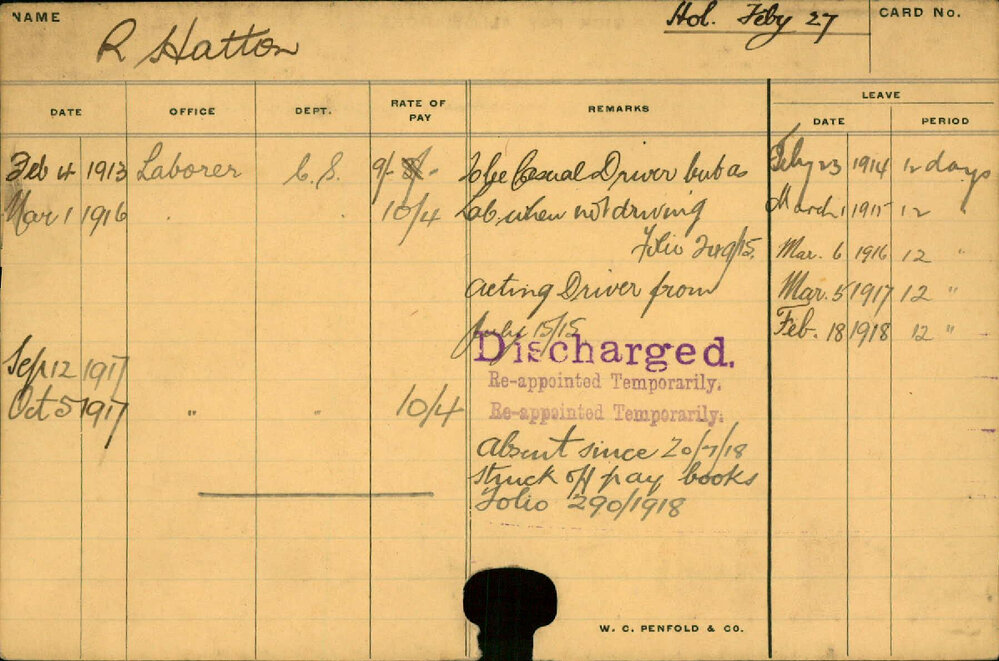 NAME
R Hatton
Hol. Feby 27
CARD No.
DATE OFFICE DEPT. RATE OF PAY REMARKS LEAVE
DATE PERIOD
Feb 4 1913 Laborer C.S. 9/- To be Casual Driver but as Feby 23 1914 12 days
Mar 1 1916 10/4 Lab. when not driving March 1 1915 12 "
Folio Mar. 6 1916 12 "
acting Driver from Mar. 5 1917 12 "
July 15/15 Feb. 18 1918 12 "
Sep 12 1917 Discharged.
Re-appointed Temporarily.
Oct 5 1917 " " 10/4 Re-appointed Temporarily.
absent since 20/7/18
struck off pay books
Folio 290/1918
W. C. PENFOLD & CO.